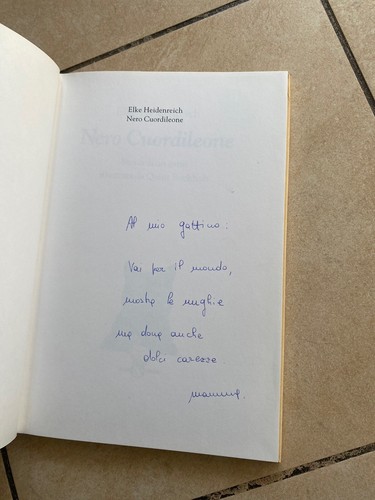 Elke Heidenreich
Nero Cuordileone
Nero Cuordileone
Al mio gattino:
Vai per il mondo,
mostra le unghie
ma dona anche
dolci carezze
mamma.